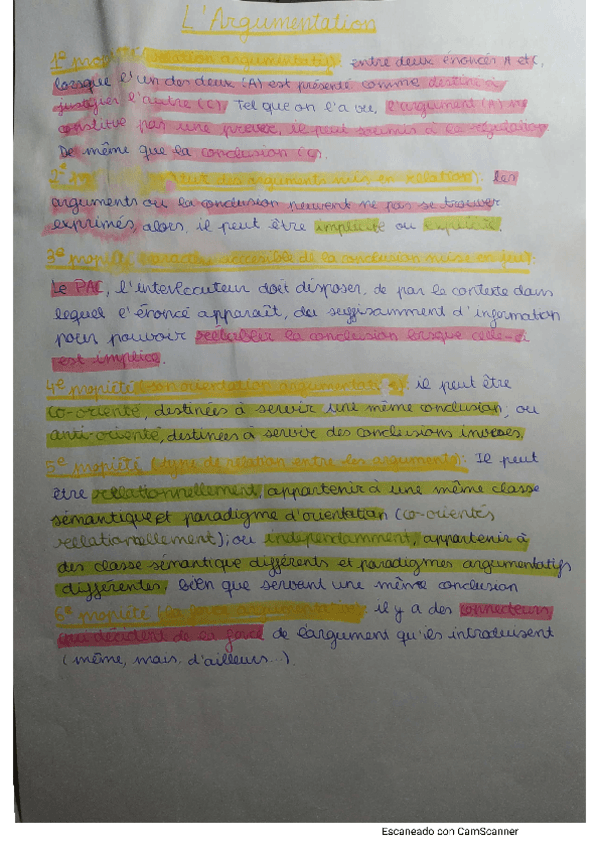 L'Argumentation
1e relation argumentative: entre deux énoncés A et C,
lorsque l'un des deux (A) est présenté comme destiné à
justifier l'autre (C). Tel que on l'a vu, l'argument (A) ne
constitue pas une preuve, il peut soumis à
De même que la conclusion (C).
2e des arguments mis en relation): les
arguments ou la conclusion peuvent ne pas se trouver
exprimés, alors, il peut être implicite ou explicite.
3e propiété accessible de la conclusion mise en jeu):
Le PAC, l'interlocuteur doit disposer, de par le contexte dans
lequel l'énoncé apparaît, du suffisamment d'information
pour pouvoir rétablir la conclusion lorsque celle-ci
est implice.
4e propiété (son orientation argumentative): il peut être
co-orienté, destinées à servoir une même conclusion, ou
anti-orienté, destinées à servoir des conclusions inverses.
5e mopiété (type de relation entre les arguments): Il peut
être relationnellement, appartenir à une même classe
sémantique et paradigme d'orientation (co-orientés
relationellement); ou independamment, appartenir à
des classe sémantique différents et paradigmes argumentatifs
différentes, bien que servant une même conclusion
6e mopiété (la force argumentative): il y a des connecteurs
qui décident de la force de l'argument qu'ils introduisent
(même, mais, d'ailleurs...).
Escaneado con CamScanner